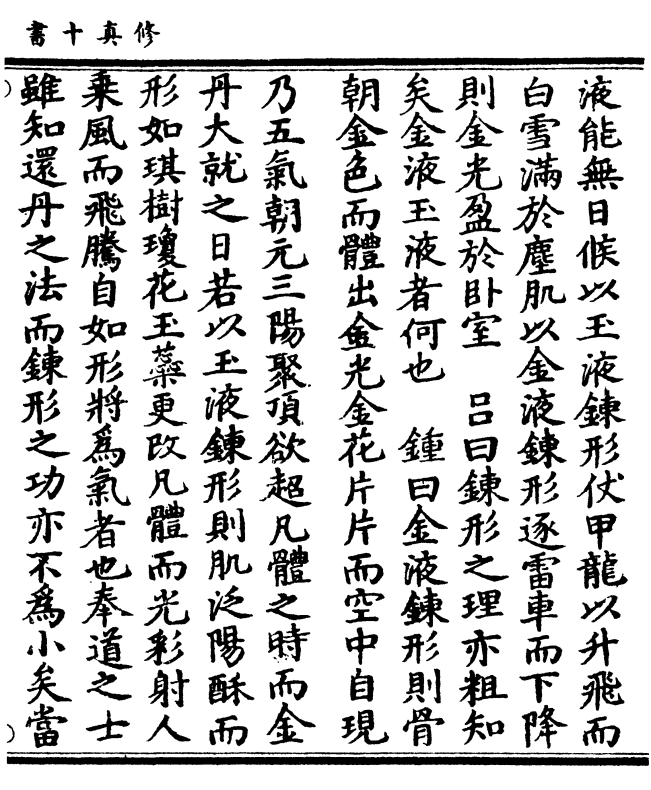 修真十書
液能無日候以玉液鍊形伏甲龍以升飛而
白雪滿於塵肌以金液鍊形逐雷車而下降
則金光盈於卧室　呂曰鍊形之理亦粗知
矣金液玉液者何也　鍾曰金液鍊形則骨
朝金色而體出金光金花片片而空中自現
乃五氣朝元三陽聚頂欲超凡體之時而金
丹大就之日若以玉液鍊形則肌泛陽酥而
形如琪樹瓊花玉蘂更改凡體而光彩射人
乗風而飛騰自如形將爲氣者也奉道之士
雖知還丹之法而鍊形之功亦不爲小矣當